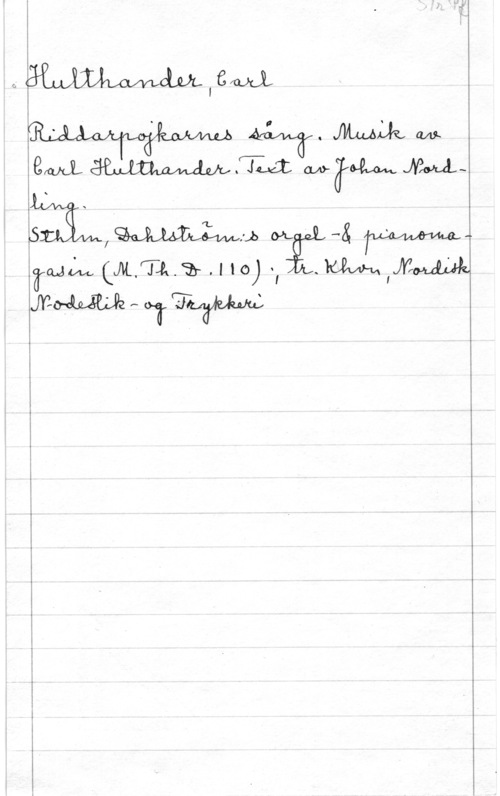 Hulthander, Carl
Riddarpojkarnes sång. Musik av
Carl Hulthander. Text av Johan Nord-
ling.
Sthlm, Dahlström:s orgel-& pianoma-
gasin (M. Th. D. 110); tr. Khvn, Nordisk
Nodestik- og Trykkeri